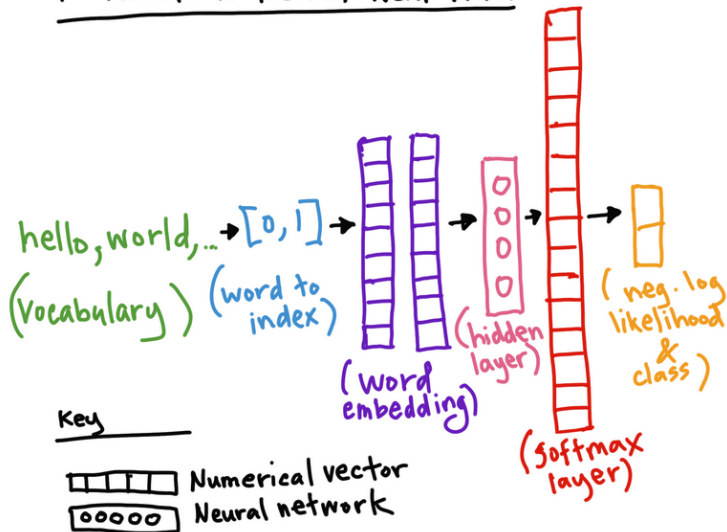 hello, world, ...
(vocabulary)
[0, 1]
(word to
index)
(word
embedding)
(hidden
layer)
(softmax
layer)
(neg. log
likelihood
&
class)
Key
Numerical vector
Neural network